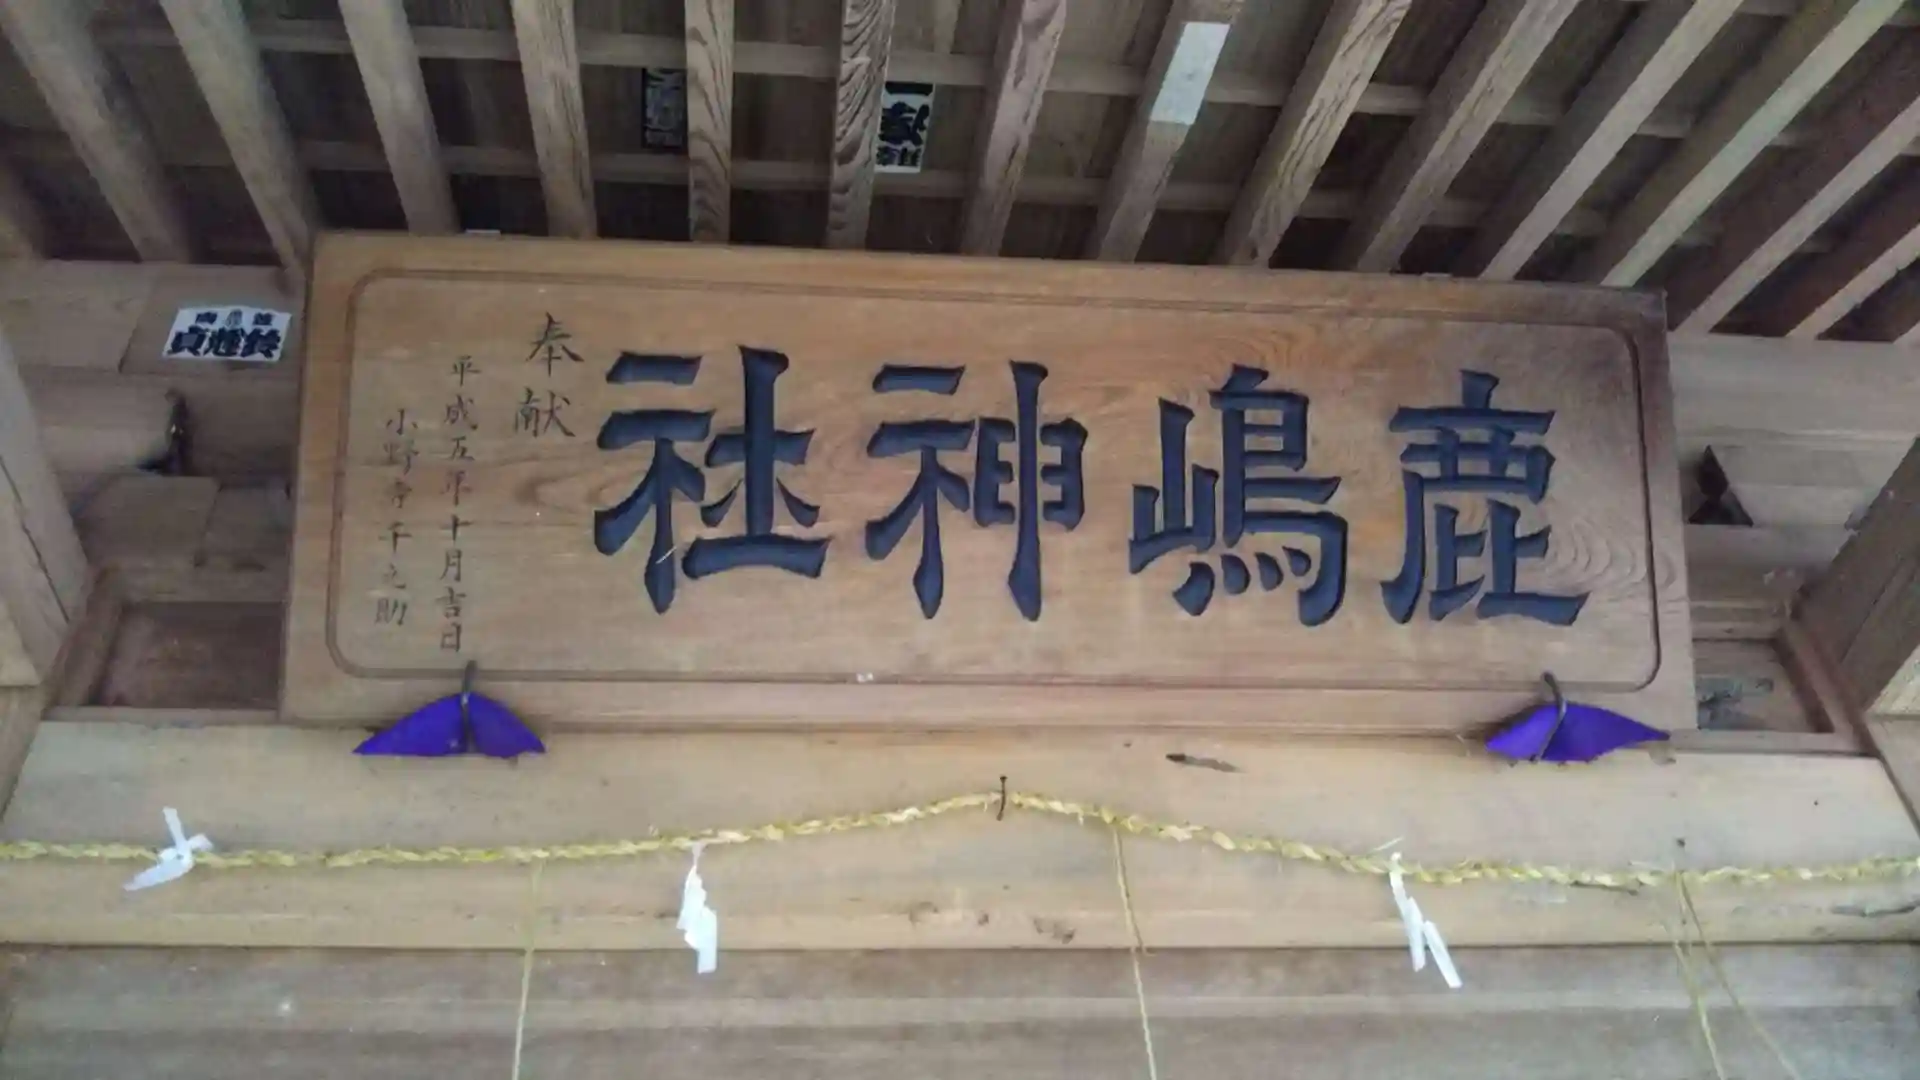 鹿嶋神社
奉献
平成五年十月吉日
小野寺千之助